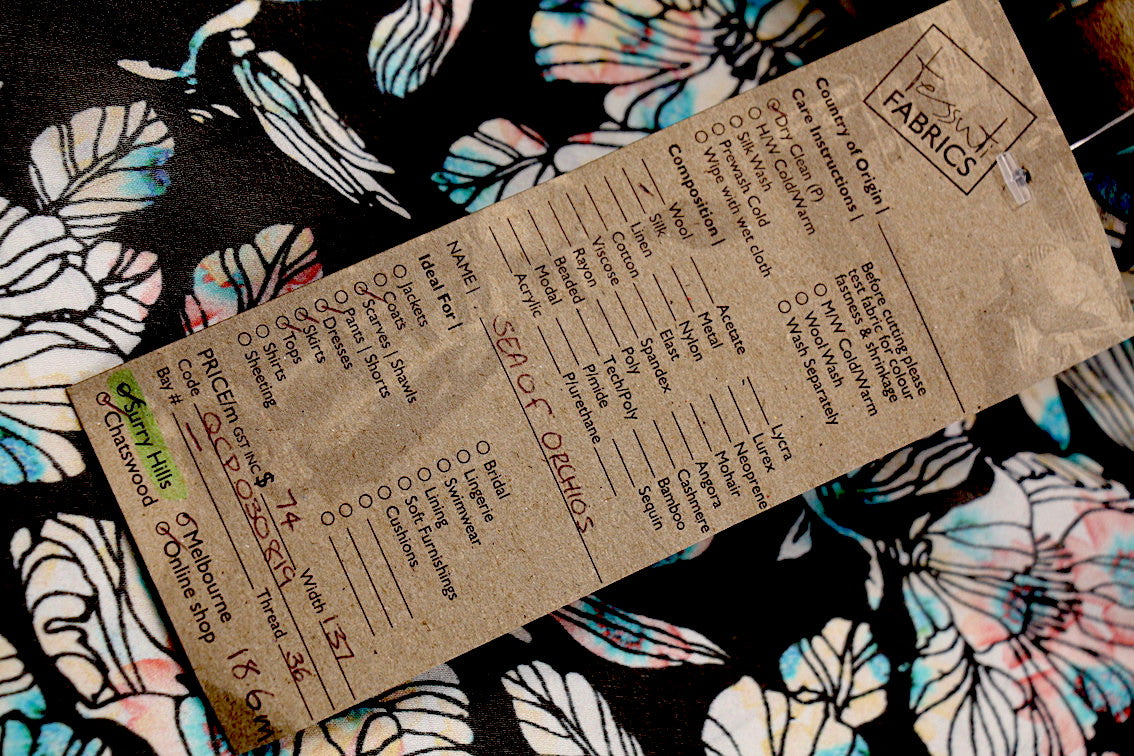 Tessuti
FABRICS
Country of Origin |
Care Instructions |
Dry Clean (P)
H/W Cold/Warm
Silk Wash
Prewash Cold
Wipe with wet cloth
Before cutting please
test fabric for colour
fastness & shrinkage
M/W Cold/Warm
Wool Wash
Wash Separately
Composition |
Wool
Silk
Linen
Cotton
Viscose
Rayon
Beaded
Modal
Acrylic
Acetate
Metal
Nylon
Elast
Spandex
Poly
Tech/Poly
P/mide
P/urethane
Lycra
Lurex
Neoprene
Mohair
Angora
Cashmere
Bamboo
Sequin
NAME | SEA OF ORCHIDS
Ideal For |
Jackets
Coats
Scarves | Shawls
Pants | Shorts
Dresses
Skirts
Tops
Shirts
Sheeting
Bridal
Lingerie
Swimwear
Lining
Soft Furnishings
Cushions
PRICE/m GST INC $ 74 Width 137
Code QCD030819 Thread 36
Bay # —
Surry Hills Melbourne
Chatswood Online shop 186m